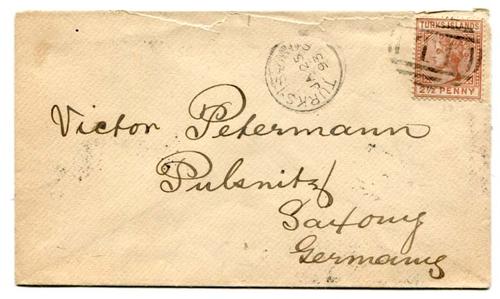 TURKS ISLANDS
2½ PENNY
TURKS-ISLANDS
Victor Petermann
Pulsnitz
Saxony
Germany